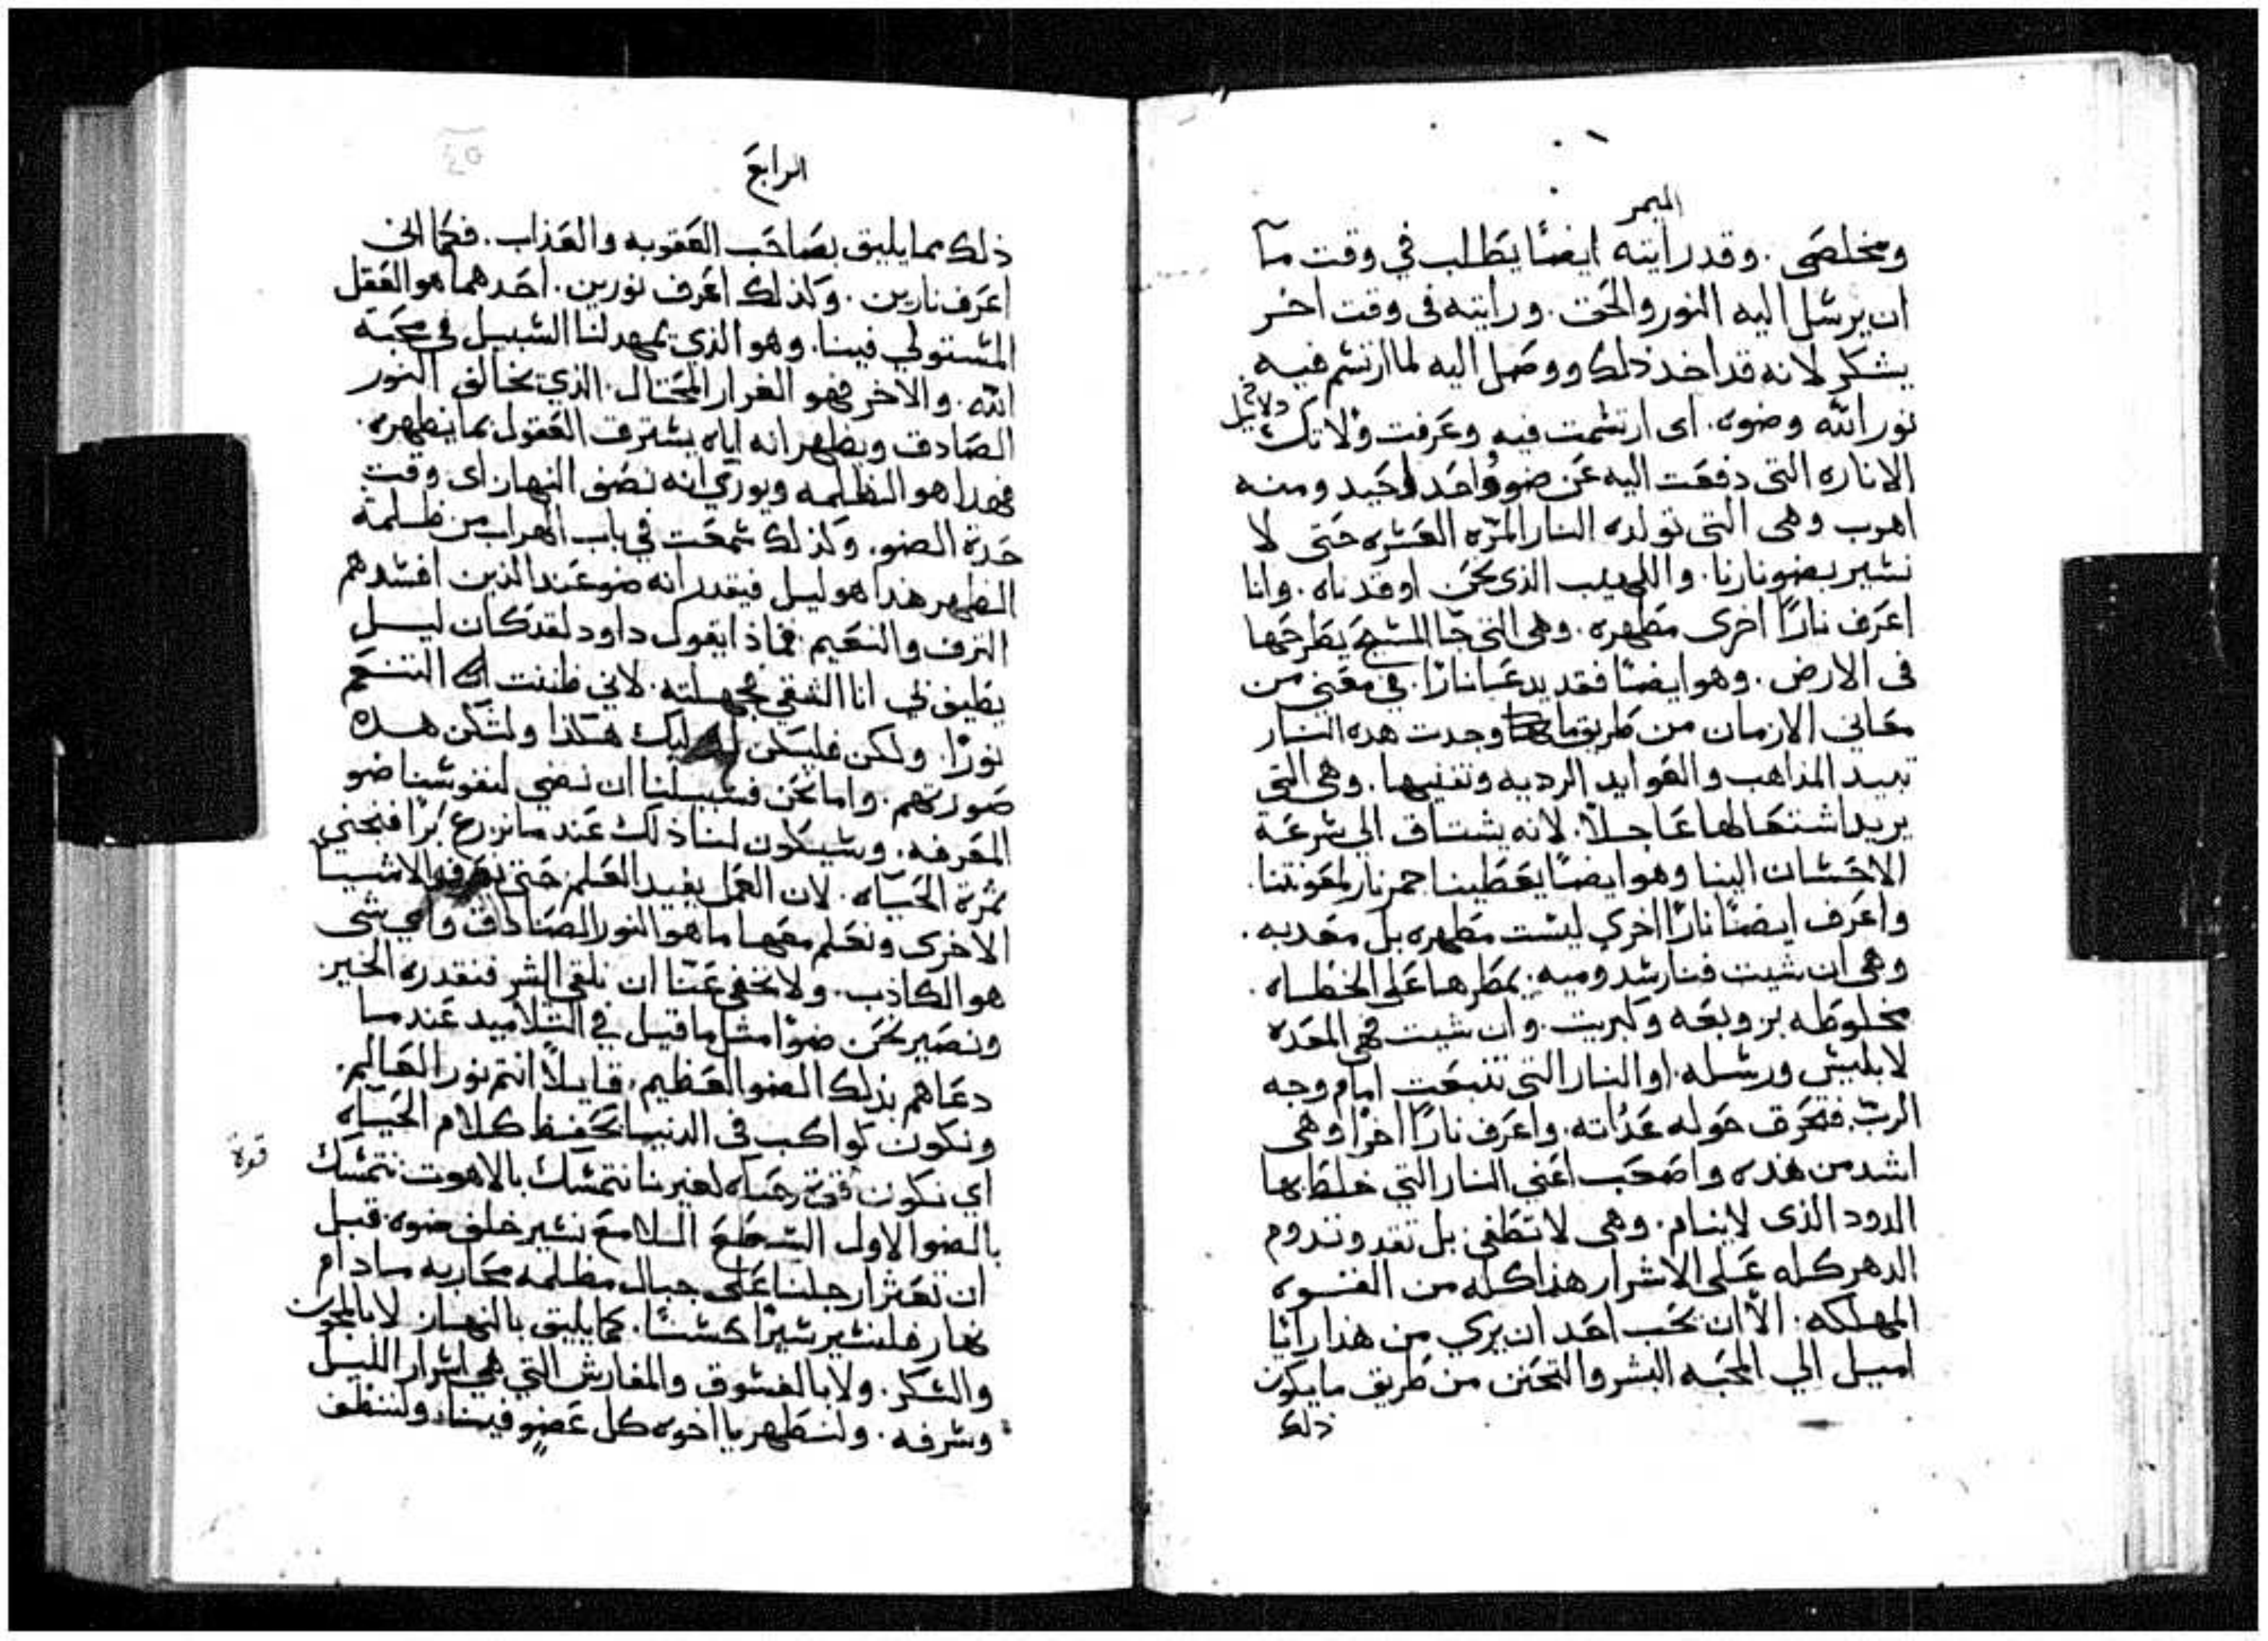 الميمر
ومخلصى. وقد رايته ايضًا يطلب في وقت ما
ان يرسل اليه النور والحق. ورايته فى وقت اخر
يشكر لانه قد اخذ ذلك ووصل اليه لما ارتسم فيه
نور الله وضوه. اى ارتسمت فيه وعرفت دلايل تلك
الاناره التى دفعت اليه عن ضوو واحد احيد ومنه
اهرب وهى التى تولده النار المرّه العسره حتى لا
نسير بضو نارنا. واللهيب الذى نحن اوقدناه. وانا
اعرف نارًا اخرى مطهره. وهى التى جا المسيح يطرحها
فى الارض. وهو ايضًا فقد يدعا نارًا. في معنى من
معاني الازمان من طريق ما وجدت هده النار
تبيد المذاهب والعوايد الرديه وتفنيها. وهى التى
يريد اشتعالها عاجلاً. لانه يشتاق الى سرعة
الاحسان الينا وهو ايضًا يعطينا جمر نار لمعونتنا.
واعرف ايضًا نارًا اخرى ليست مطهره بل معدبه.
وهى ان شيت فنار سدوميه. يمطرها على الخطاه.
مخلوطه بزوبعه وكبريت. وان شيت فهى المعده
لابليس ورسله. او النار التى تنبعت امام وجه
الربّ. فتحرق حوله عداته. واعرف نارًا اخرا وهى
اشد من هده واصعب اعنى النار التي خلط بها
الدود الذى لاينام. وهى لا تطفى بل تقد وتدوم
الدهر كله على الاشرار هذا كله من القوه
المهلكه. الاّ ان يحب احد ان يري من هذا راْيًا
اميل الي المحبه البشر والتحنن من طريق مايكون
ذلك
الرابع
ذلك مما يليق بصاحب العقوبه والعذاب. فكما انى
اعرف نارين. وكذلك اعرف نورين. احدهما هو العقل
المستولي فينا. وهو الذي يمهد لنا السبيل في محبة
الله. والاخر فهو الغرار المحتال. الذي يخالف النور
الصادق ويظهر انه اياه يسترق العقول بما يظهره.
فهدا هو الظلمه ويوري انه نصف النهار اى وقت
حدة الضو. وكذلك سمعت في باب الهراب من ظلمة
الظهر هدا هو ليل فيقدر انه ضو عند الذين افسدهم
الترف والنعيم. فماذا يقول داود لقد كان ليل
يطيف بي انا الشقي فجهلته. لاني ظننت ان التنعم
نورًا. ولكن فليكن اوليك هكذا ولتكن هده
صورتهم. واما نحن فسبيلنا ان نضي لنفوسنا ضو
المعرفه. وسيكون لنا ذلك عند ما نزرع برًا فنجني
ثمرة الحياه. لان العمل يفيد العلم حتى نعرف الاشيا
الاخرى ونعلم معها ما هو النور الصادق واي شى
هو الكاذب. ولا يخفى عنّا ان نلقى الشر فنقدره الخير
ونصير نحن ضوًا مثل ما قيل في التلاميد عند ما
دعاهم بذلك الضو العظيم. قايلاً انتم نور العالم.
ونكون كواكب فى الدنيا نحفظ كلام الحياه
اي نكون قوة حياه لغيرنا نتمسك بالاهوت نتمسك
قوة
بالضو الاول الساطع اللامع نسير خلف ضوه. قبل
ان تعثر ارجلنا على جبال مظلمه محاربه مادام
نهار فلنسير سيرًا حسنًا. كما يليق بالنهار لا بالمجون
والسكر. ولا بالفسوق والمفارش التي هي اسرار الليل
وسرفه. ولنطهر يا اخوه كل عضو فينا. ولننظف